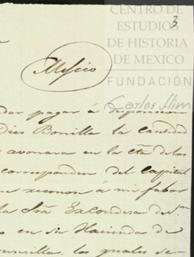 CENTRO DE
ESTUDIOS
DE HISTORIA
DE MEXICO
FUNDACIÓN
Carlos Slim
3
Mejico
dar pagar á disposicion
Bonilla la cantidad
abonara en la cta de los
corresponden del capital
que reconoce á mi favor
la Sra Excondesa de
en su Hacienda de
los quales se